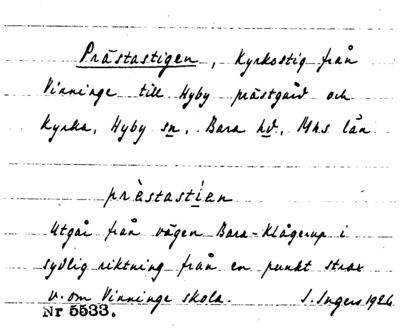 Prästastigen, Kyrkostig från
Vinninge till Hyby prästgård och
Kyrka, Hyby sn, Bara hd, Mhs län
prèstastien
Utgår från vägen Bara-Klågerup i
sydlig riktning från en punkt strax
v. om Vinninge skola. S. Ingers 1926
Nr 5533.